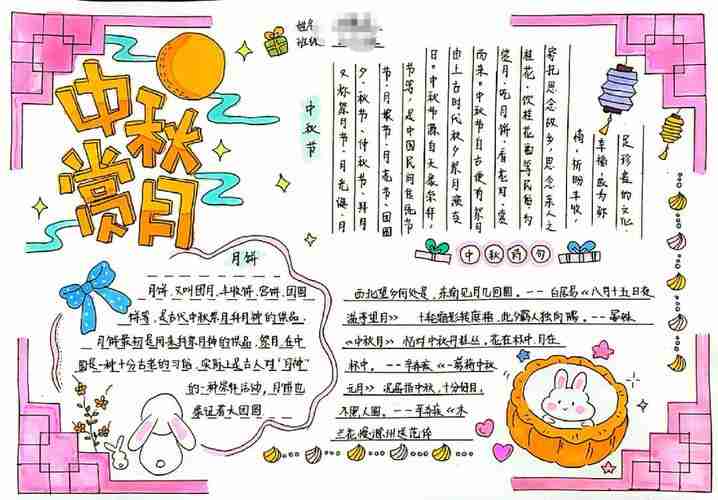 姓名
班级
中秋
赏月
中秋节
又称祭月节、月光诞、月
夕、秋节、仲秋节、拜月
节、月娘节、月亮节、团圆
节等，是中国民间传统节
日。中秋节源自天象崇拜，
由上古时代秋夕祭月演变
而来。中秋节自古便有祭月
赏月、吃月饼、看花灯、赏
桂花、饮桂花酒等民俗，为
寄托思念故乡，思念亲人之
情，祈盼丰收、
幸福，成为弥
足珍贵的文化
月饼
月饼，又叫团月、丰收饼、宫饼、团圆
饼等，是古代中秋祭月拜月神的供品，
月饼最初是用来拜祭月神的供品，祭月在中
国是一种十分古老的习俗，实际上是古人对"月神"
的一种崇拜活动，月饼也
象征着大团圆
中秋诗句
西北望乡何处是，东南见月几回圆。--白居易《八月十五日夜
湓亭望月》 十轮霜影转庭梧，此夕羁人独向隅。--晏殊
《中秋月》 恰对中秋丹桂丛，花在杯中，月在
杯中。--辛弃疾《一剪梅·中秋
元月》 况屈指中秋，十分好月，
不照人圆。--辛弃疾《木
兰花慢·滁州送范倅